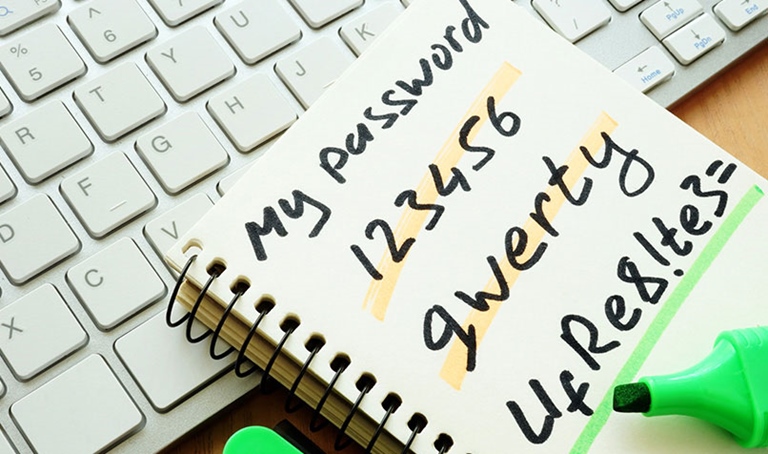 My password
123456
qwerty
UfRe8!te3=
% 5
^ 6
R
T
Y
U
D
F
G
H
J
K
X
C
V
? /
PgUp
PgDn
Home
End